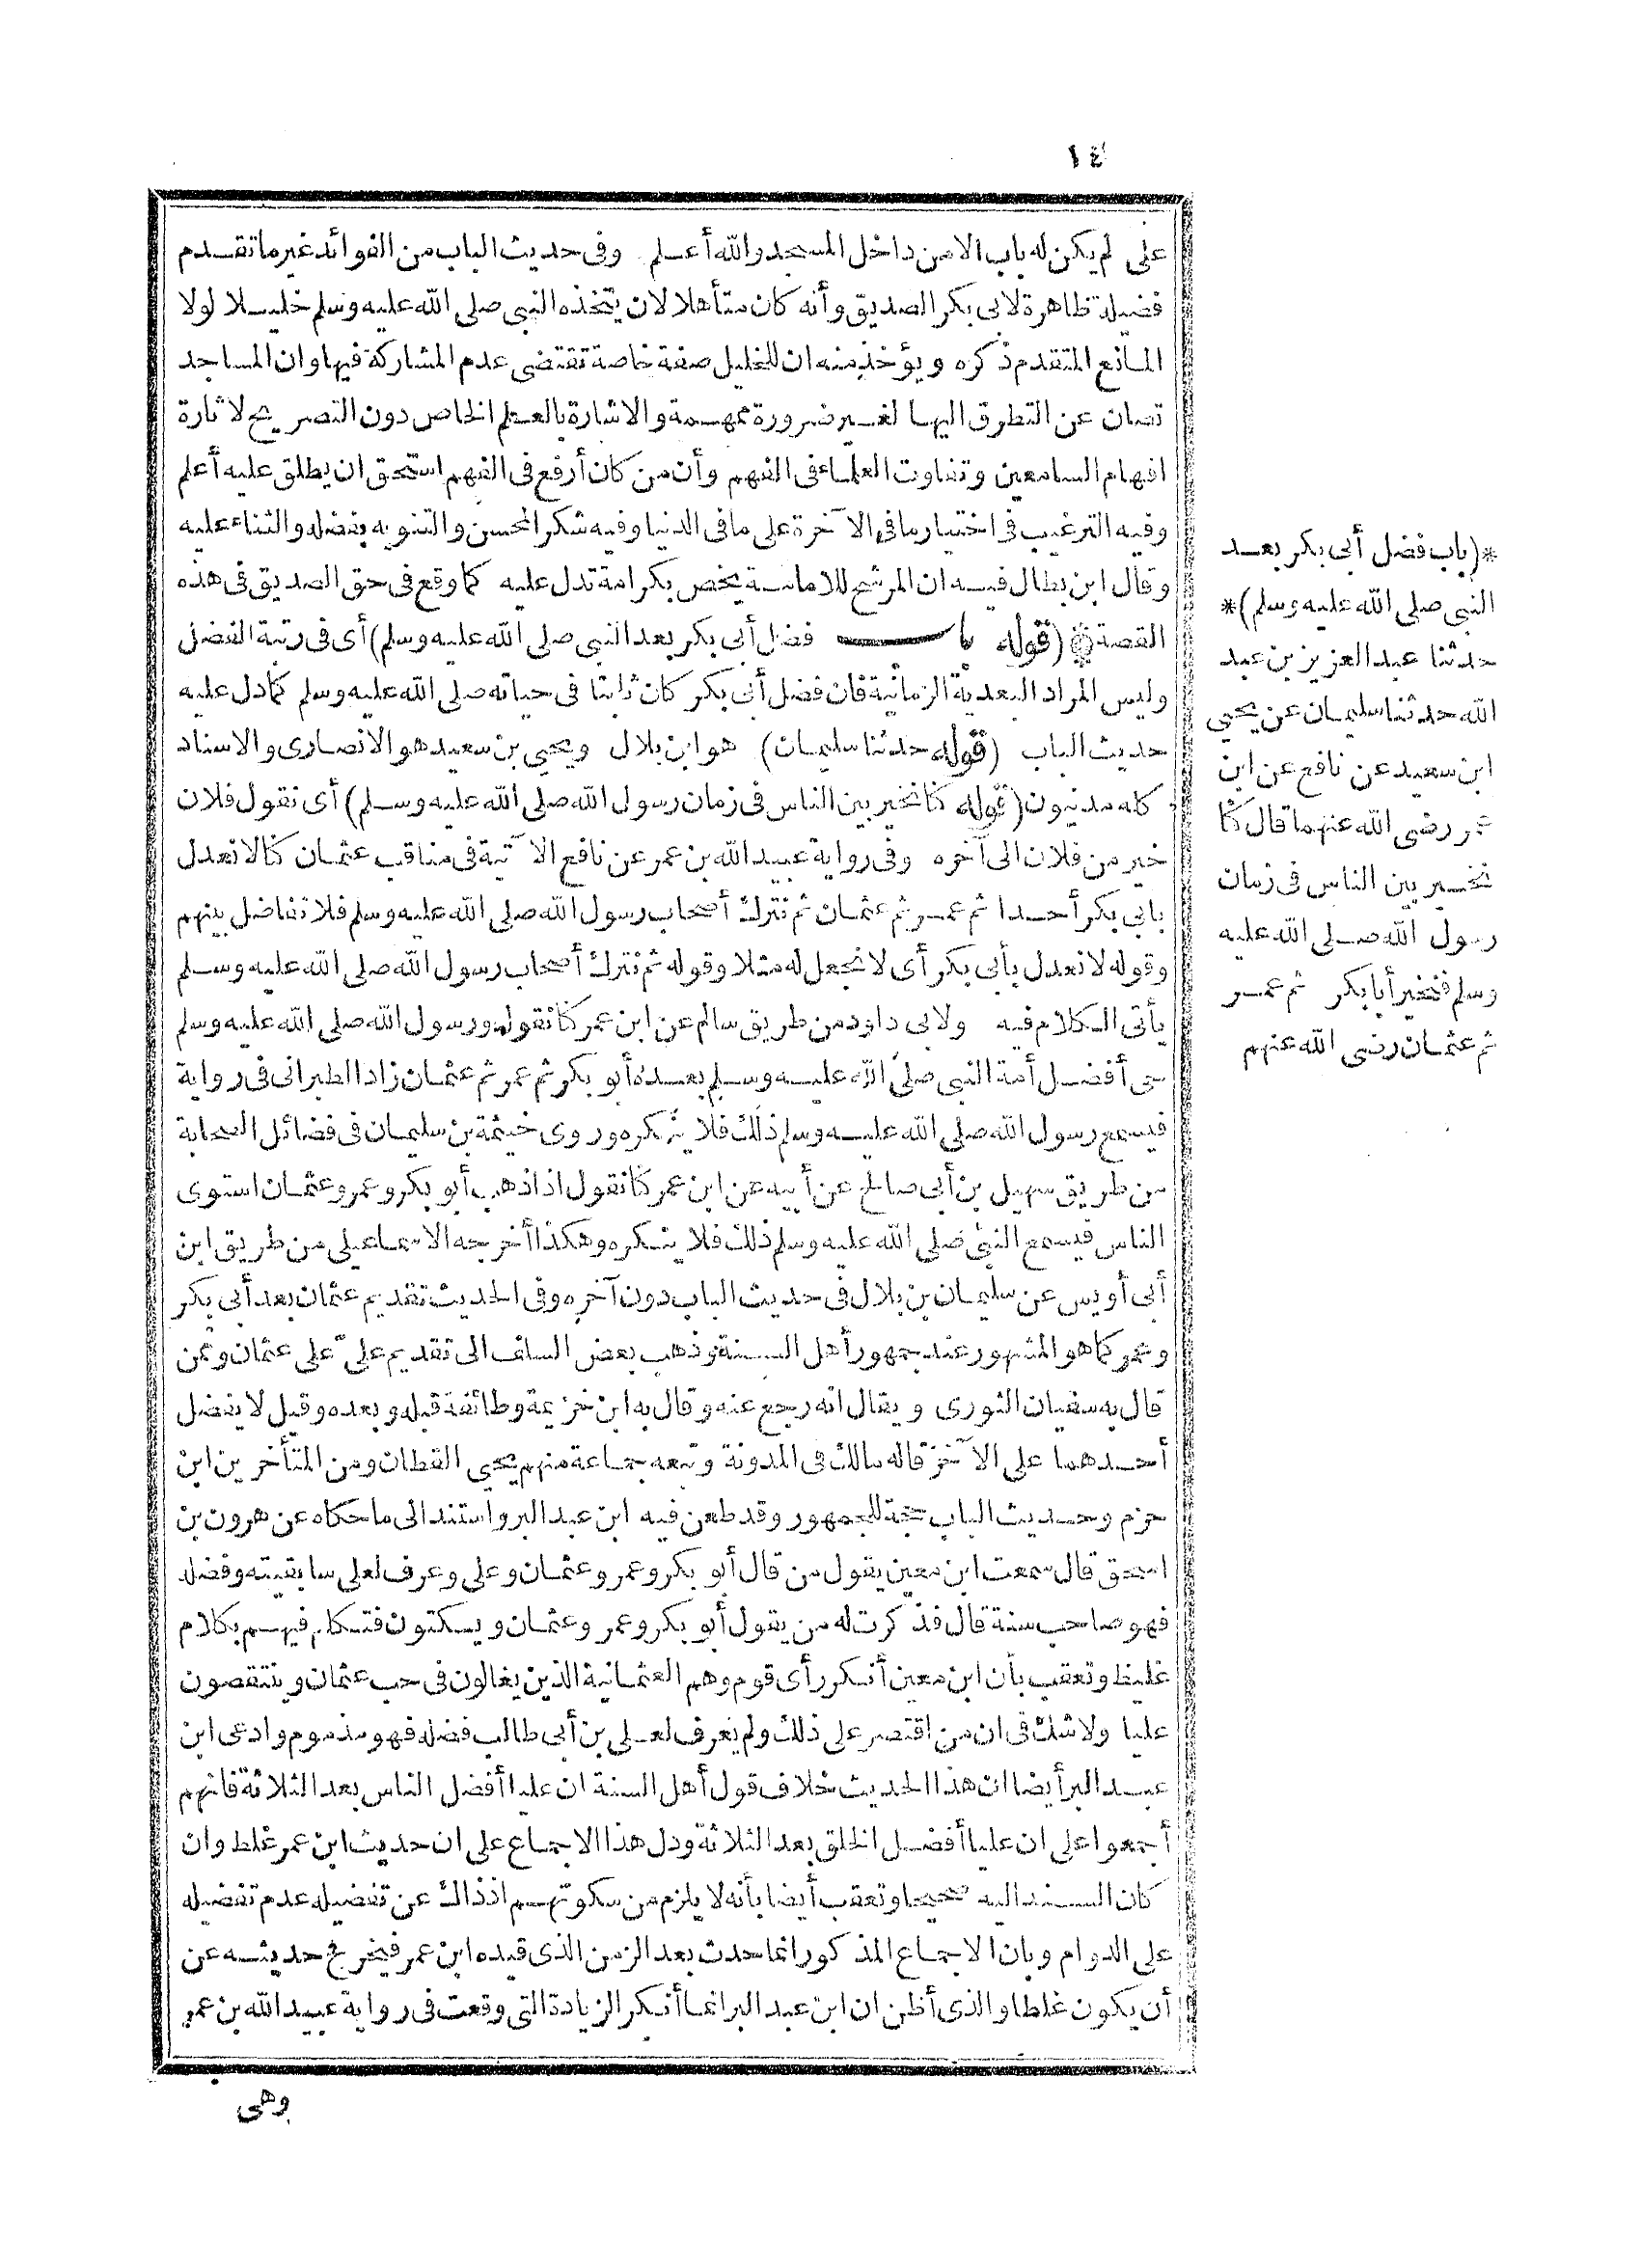 ١٤
على لم يكن له باب الا من داخل المسجد والله أعلم وفى حديث الباب من الفوائد غير ما تقدم
فضيلة ظاهرة لابى بكر الصديق وأنه كان متأهلا لان يتخذه النبى صلى الله عليه وسلم خليلا لولا
المانع المتقدم ذكره ويؤخذ منه ان للخليل صفة خاصة تقتضى عدم المشاركة فيها وان المساجد
تصان عن التطرق اليها لغير ضرورة مهمة والاشارة بالعلم الخاص دون التصريح لاثارة
افهام السامعين وتفاوت العلماء فى الفهم وأن من كان أرفع فى الفهم استحق ان يطلق عليه أعلم
وفيه الترغيب فى اختيار ما فى الآخرة على ما فى الدنيا وفيه شكر المحسن والتنويه بفضله والثناء عليه
وقال ابن بطال فيه ان المرشح للامامة يخص بكرامة تدل عليه كما وقع فى حق الصديق فى هذه
القصة (قوله باب فضل أبى بكر بعد النبى صلى الله عليه وسلم) أى فى رتبة الفضل
وليس المراد البعدية الزمانية فان فضل أبى بكر كان ثابتا فى حياته صلى الله عليه وسلم كما دل عليه
حديث الباب (قوله حدثنا سليمان) هو ابن بلال ويحيى بن سعيد هو الانصارى والاسناد
كله مدنيون (قوله كنا نخير بين الناس فى زمان رسول الله صلى الله عليه وسلم) أى نقول فلان
خير من فلان الى آخره وفى رواية عبيد الله بن عمر عن نافع الآتية فى مناقب عثمان كنا لا نعدل
بابى بكر أحدا ثم عمر ثم عثمان ثم نترك أصحاب رسول الله صلى الله عليه وسلم فلا تفاضل بينهم
وقوله لا نعدل بأبى بكر أى لا نجعل له مثلا وقوله ثم نترك أصحاب رسول الله صلى الله عليه وسلم
يأتى الكلام فيه ولابى داود من طريق سالم عن ابن عمر كنا نقول ورسول الله صلى الله عليه وسلم
حى أفضل أمة النبى صلى الله عليه وسلم بعده أبو بكر ثم عمر ثم عثمان زاد الطبرانى فى رواية
فيسمع رسول الله صلى الله عليه وسلم ذلك فلا ينكره وروى خيثمة بن سليمان فى فضائل الصحابة
من طريق سهيل بن أبى صالح عن أبيه عن ابن عمر كنا نقول اذا ذهب أبو بكر وعمر وعثمان استوى
الناس فيسمع النبى صلى الله عليه وسلم ذلك فلا ينكره وهكذا أخرجه الاسماعيلى من طريق ابن
أبى أويس عن سليمان بن بلال فى حديث الباب دون آخره وفى الحديث تقديم عثمان بعد أبى بكر
وعمر كما هو المشهور عند جمهور أهل السنة وذهب بعض السلف الى تقديم على على عثمان وممن
قال به سفيان الثورى ويقال انه رجع عنه وقال به ابن خزيمة وطائفة قبله وبعده وقيل لا يفضل
أحدهما على الآخر قاله مالك فى المدونة وتبعه جماعة منهم يحيى القطان ومن المتأخرين ابن
حزم وحديث الباب حجة للجمهور وقد طعن فيه ابن عبد البر واستند الى ما حكاه عن هرون بن
اسحق قال سمعت ابن معين يقول من قال أبو بكر وعمر وعثمان وعلى وعرف لعلى سابقيته وفضله
فهو صاحب سنة قال فذكرت له من يقول أبو بكر وعمر وعثمان ويسكتون فتكلم فيهم بكلام
غليظ وتعقب بأن ابن معين أنكر رأى قوم وهم العثمانية الذين يغالون فى حب عثمان وينتقصون
عليا ولا شك فى ان من اقتصر على ذلك ولم يعرف لعلى بن أبى طالب فضله فهو مذموم وادعى ابن
عبد البر أيضا ان هذا الحديث خلاف قول أهل السنة ان عليا أفضل الناس بعد الثلاثة فانهم
أجمعوا على ان عليا أفضل الخلق بعد الثلاثة ودل هذا الاجماع على ان حديث ابن عمر غلط وان
كان السند اليه صحيحا وتعقب أيضا بأنه لا يلزم من سكوتهم اذ ذاك عن تفضيله عدم تفضيله
على الدوام وبان الاجماع المذكور انما حدث بعد الزمن الذى قيده ابن عمر فيخرج حديثه عن
أن يكون غلطا والذى أظن ان ابن عبد البر انما أنكر الزيادة التى وقعت فى رواية عبيد الله بن عمر
وهى
*(باب فضل أبى بكر بعد
النبى صلى الله عليه وسلم)*
حدثنا عبد العزيز بن عبد
الله حدثنا سليمان عن يحيى
ابن سعيد عن نافع عن ابن
عمر رضى الله عنهما قال كنا
نخير بين الناس فى زمان
رسول الله صلى الله عليه
وسلم فنخير أبا بكر ثم عمر
ثم عثمان رضى الله عنهم